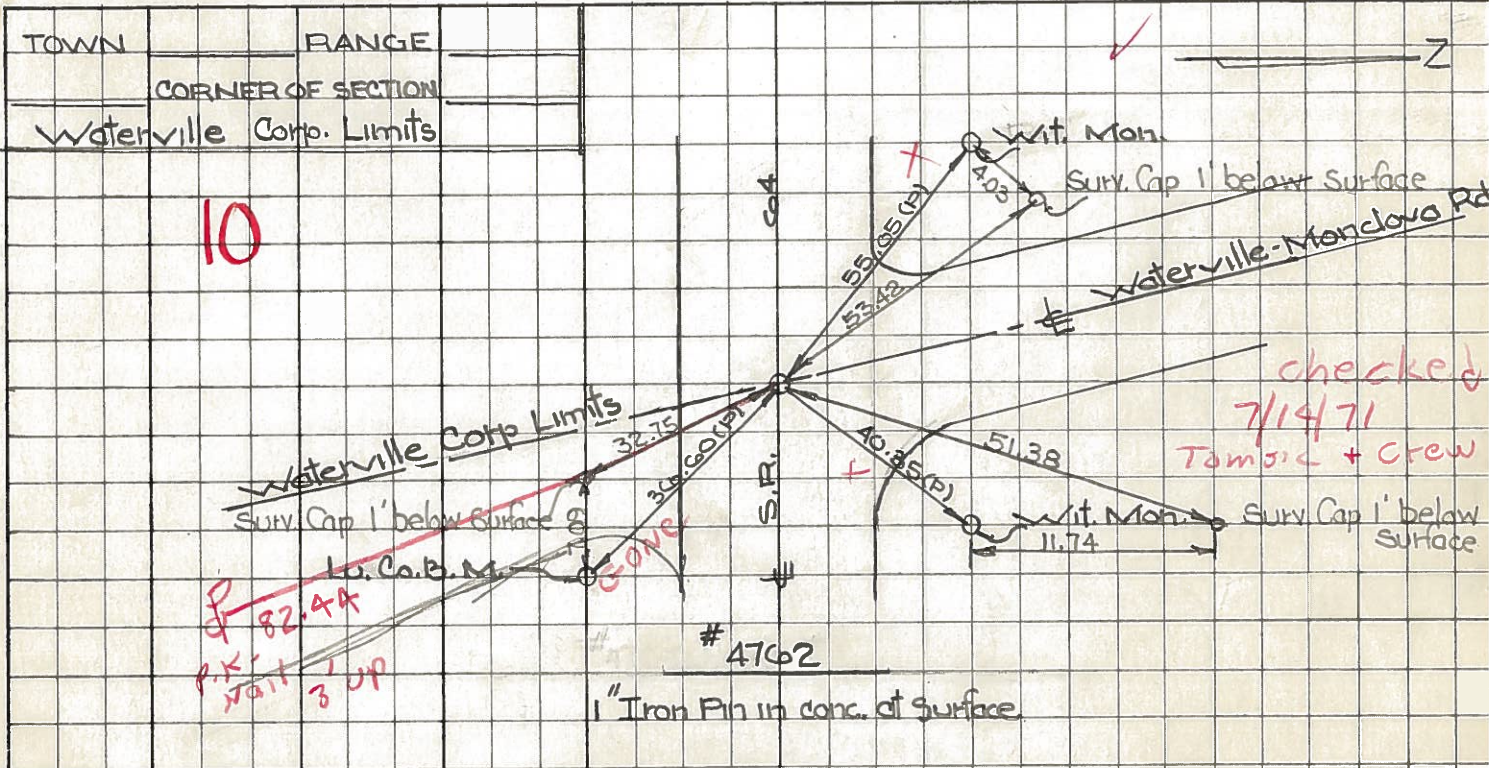 TOWN RANGE
CORNER OF SECTION
Waterville Corp. Limits
10
Z
Wit. Mon.
4.03
Surv. Cap 1' below Surface
64
55.05 (P)
53.42
Waterville-Monclova Rd
℄
checked
7/14/71
+ Crew
Waterville Corp Limits
32.75
36.60 (P)
40.35 (P)
51.38
S.R.
Surv. Cap 1' below Surface
Wit. Mon.
11.74
Surv. Cap 1' below
Surface
Lu. Co. B. M.
Gone
℄
82.44
P.K.
Nail 3' up
# 4762
1" Iron Pin in conc. at Surface